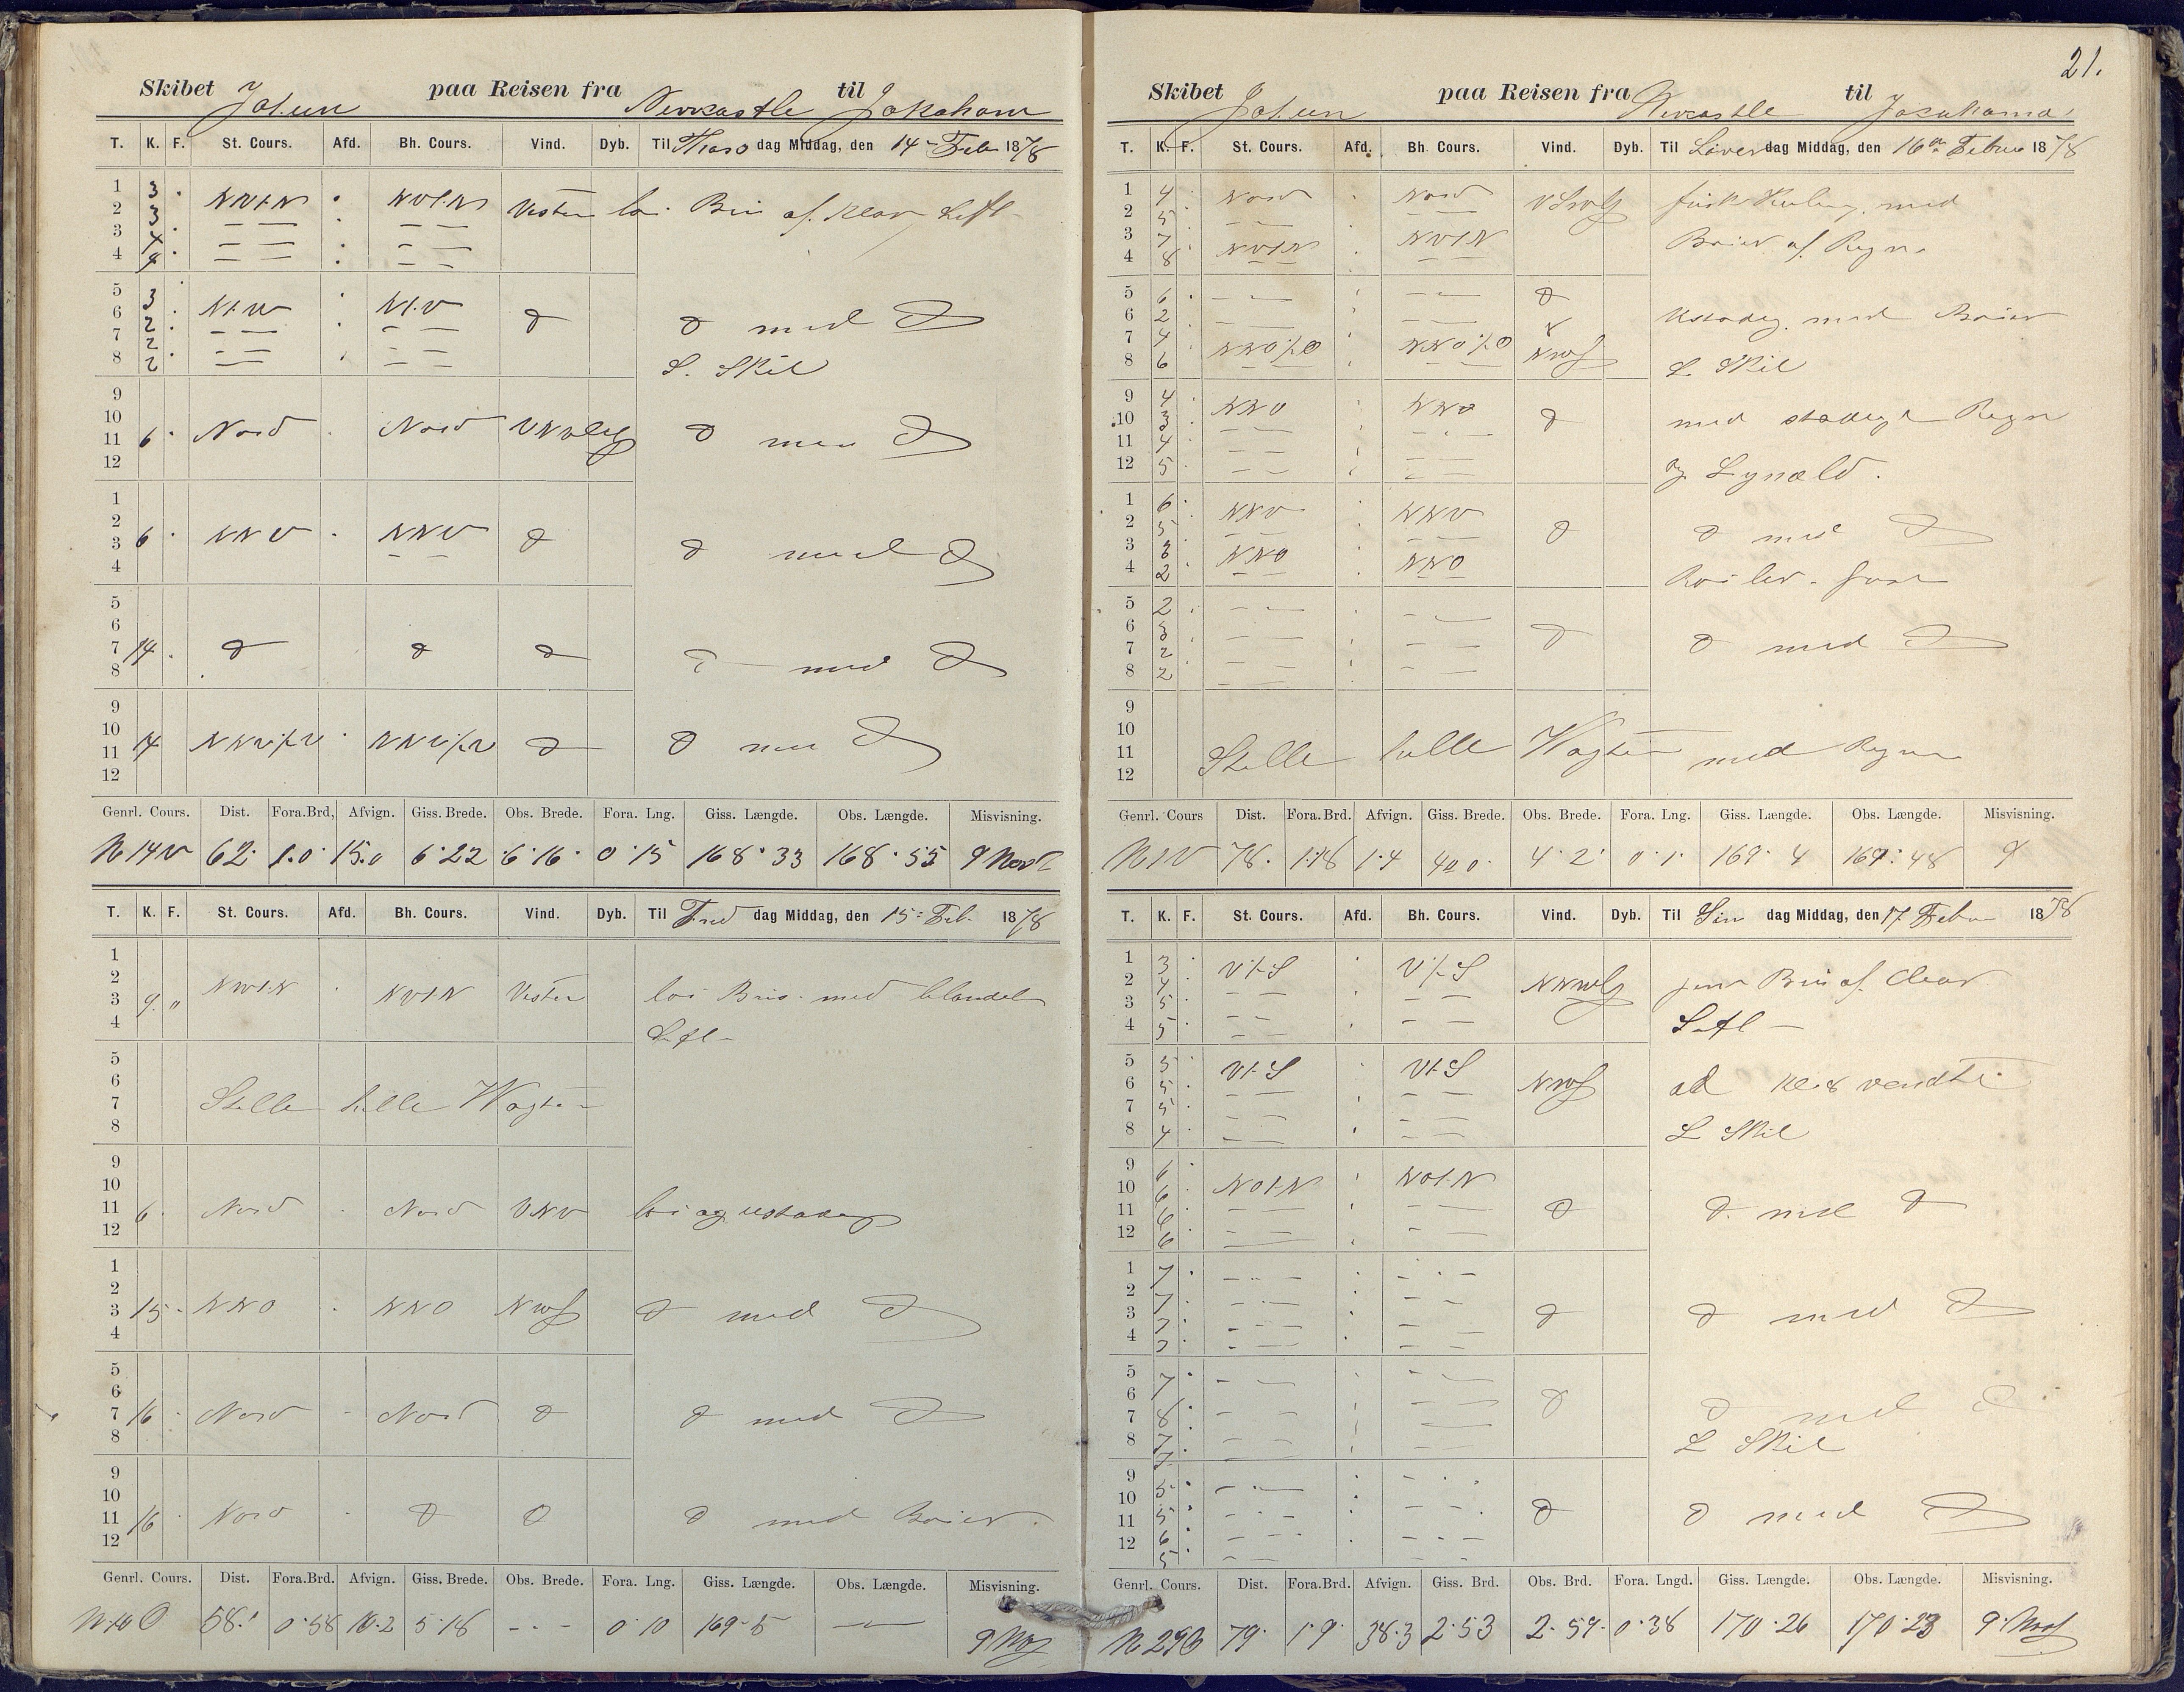 21.
Skibet Johun paa Reisen fra Newcastle til Jokoham
T. K. F. St. Cours. Afd. Bh. Cours. Vind. Dyb. Til Thors dag Middag, den 14 Feb 1878
1 3 NVtN NVtN Vesten lai Bris af klar Luft
2 3
3 4
4 4
5 3 NtV NtV d d med d
6 2
7 2
8 2 S. Skil
9
10
11 6 Nord Nord VNVlig d med d
12
1
2
3 6 NNV NNV d d med d
4
5
6
7 14 d d d d med d
8
9
10
11 14 NNV½V NNV½V d d med d
12
Genrl. Cours. Dist. Fora. Brd, Afvign. Giss. Brede. Obs. Brede. Fora. Lng. Giss. Længde. Obs. Længde. Misvisning.
N 14 V 62 1.0 15.0 6.22 6.16 0.15 168.33 168.55 9
T. K. F. St. Cours. Afd. Bh. Cours. Vind. Dyb. Til Fred dag Middag, den 15 Feb. 1878
1
2
3 9 " NVtN NVtN Vesten lai Bris med blandet
4 Luft
5
6
7 Stille hele Wagten
8
9
10
11 6 Nord Nord VNV lai og ustadig
12
1
2
3 15 NNO NNO d med d
4
5
6
7 16 Nord Nord d d med d
8
9
10
11 16 Nord d d d med Baier.
12
Genrl. Cours. Dist. Fora. Brd. Afvign. Giss. Brede. Obs. Brede. Fora. Lng. Giss. Længde. Obs. Længde. Misvisning.
N 10 O 58. 0.58 10.2 5.18 - - - 0 10 169.5 — 9
Skibet Johun paa Reisen fra Newcastle til Jokohama
T. K. F. St. Cours. Afd. Bh. Cours. Vind. Dyb. Til Løver dag Middag, den 16 Febru 1878
1 4 Nord Nord frisk Kuling med
2 5
3 7 NVtN NVtN Baier af Regn
4 8
5 6 d
6 2 Ustadig med Baier
7 4 NNO½O NNO½O
8 6 S. Skil
9 4 NNO NNO d med stadige Regn
10 3
11 4
12 5 og Lynæld.
1 6 NNV NNV
2 5 d d med d
3 3 NNO NNO
4 2
5 2
6 3 d d med d
7 2
8 2
9
10
11 Stille hele Wagten med Regn
12
Genrl. Cours Dist. Fora. Brd. Afvign. Giss. Brede. Obs. Brede. Fora. Lng. Giss. Længde. Obs. Længde. Misvisning.
N 1 V 78. 1.18 1.4 4.0 4.2 0.1 169.4 169.48 9
T. K. F. St. Cours. Afd. Bh. Cours. Vind. Dyb. Til Søn dag Middag, den 17 Febr 1878
1 3 VtS VtS
2 4 NNWlg jevn Bris af Clear
3 5
4 5 Luft
5 3 VtS VtS
6 5 ad Kl. 8 vendte
7 5
8 4 S Skil
9 6
10 6 NOtN NOtN
11 6 d d med d
12 6
1 7
2 7
3 7 d d med d
4 7
5 7
6 8 d d med d
7 7
8 7 S Skil
9 5
10 5 d d med d
11 6
12 5
Genrl. Cours. Dist. Fora. Brd. Afvign. Giss. Brd. Obs. Brd. Fora. Lngd. Giss. Længde. Obs. Længde. Misvisning.
N 29 O 79 1.9 38.3 2.53 2.59 0.38 170.26 170.23 9